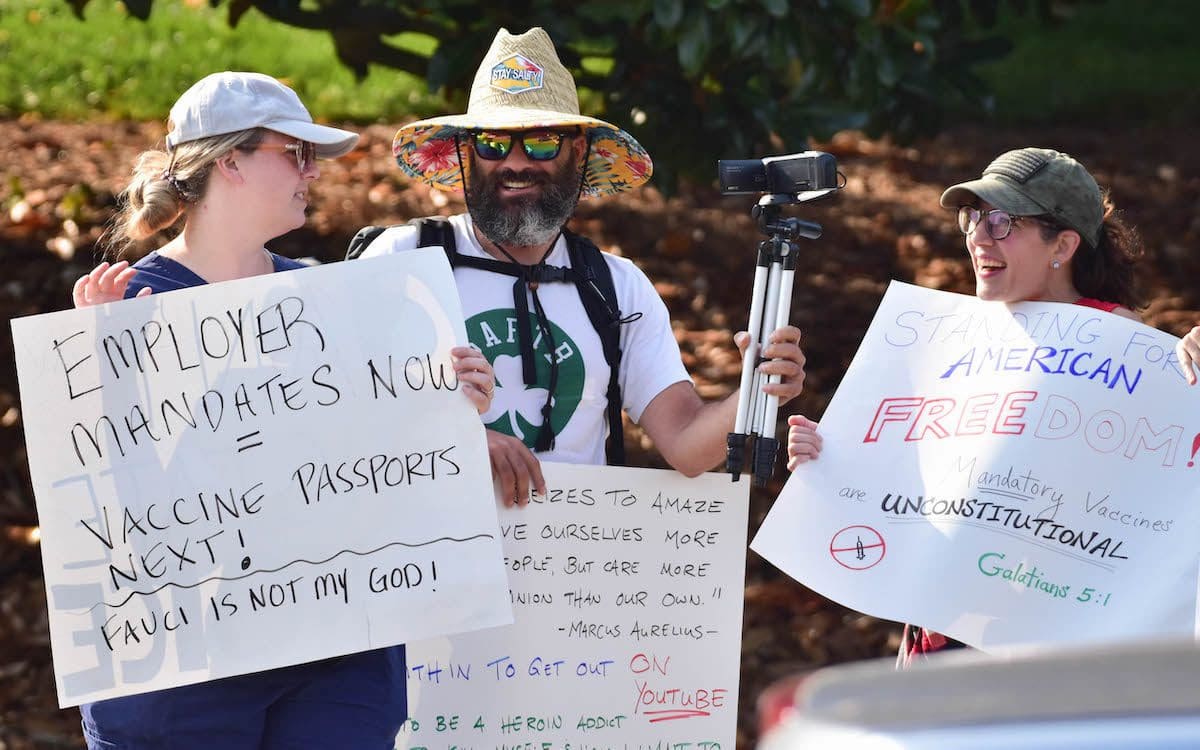 EMPLOYER
MANDATES NOW
=
VACCINE PASSPORTS
NEXT!
FAUCI IS NOT MY GOD!
STAY SALTY
EARTH
TO AMAZE
OURSELVES MORE
BUT CARE MORE
THAN OUR OWN."
-MARCUS AURELIUS-
TO GET OUT ON
YOUTUBE
BE A HEROIN ADDICT
STANDING FOR
AMERICAN
FREEDOM!
Mandatory Vaccines
are UNCONSTITUTIONAL
Galatians 5:1